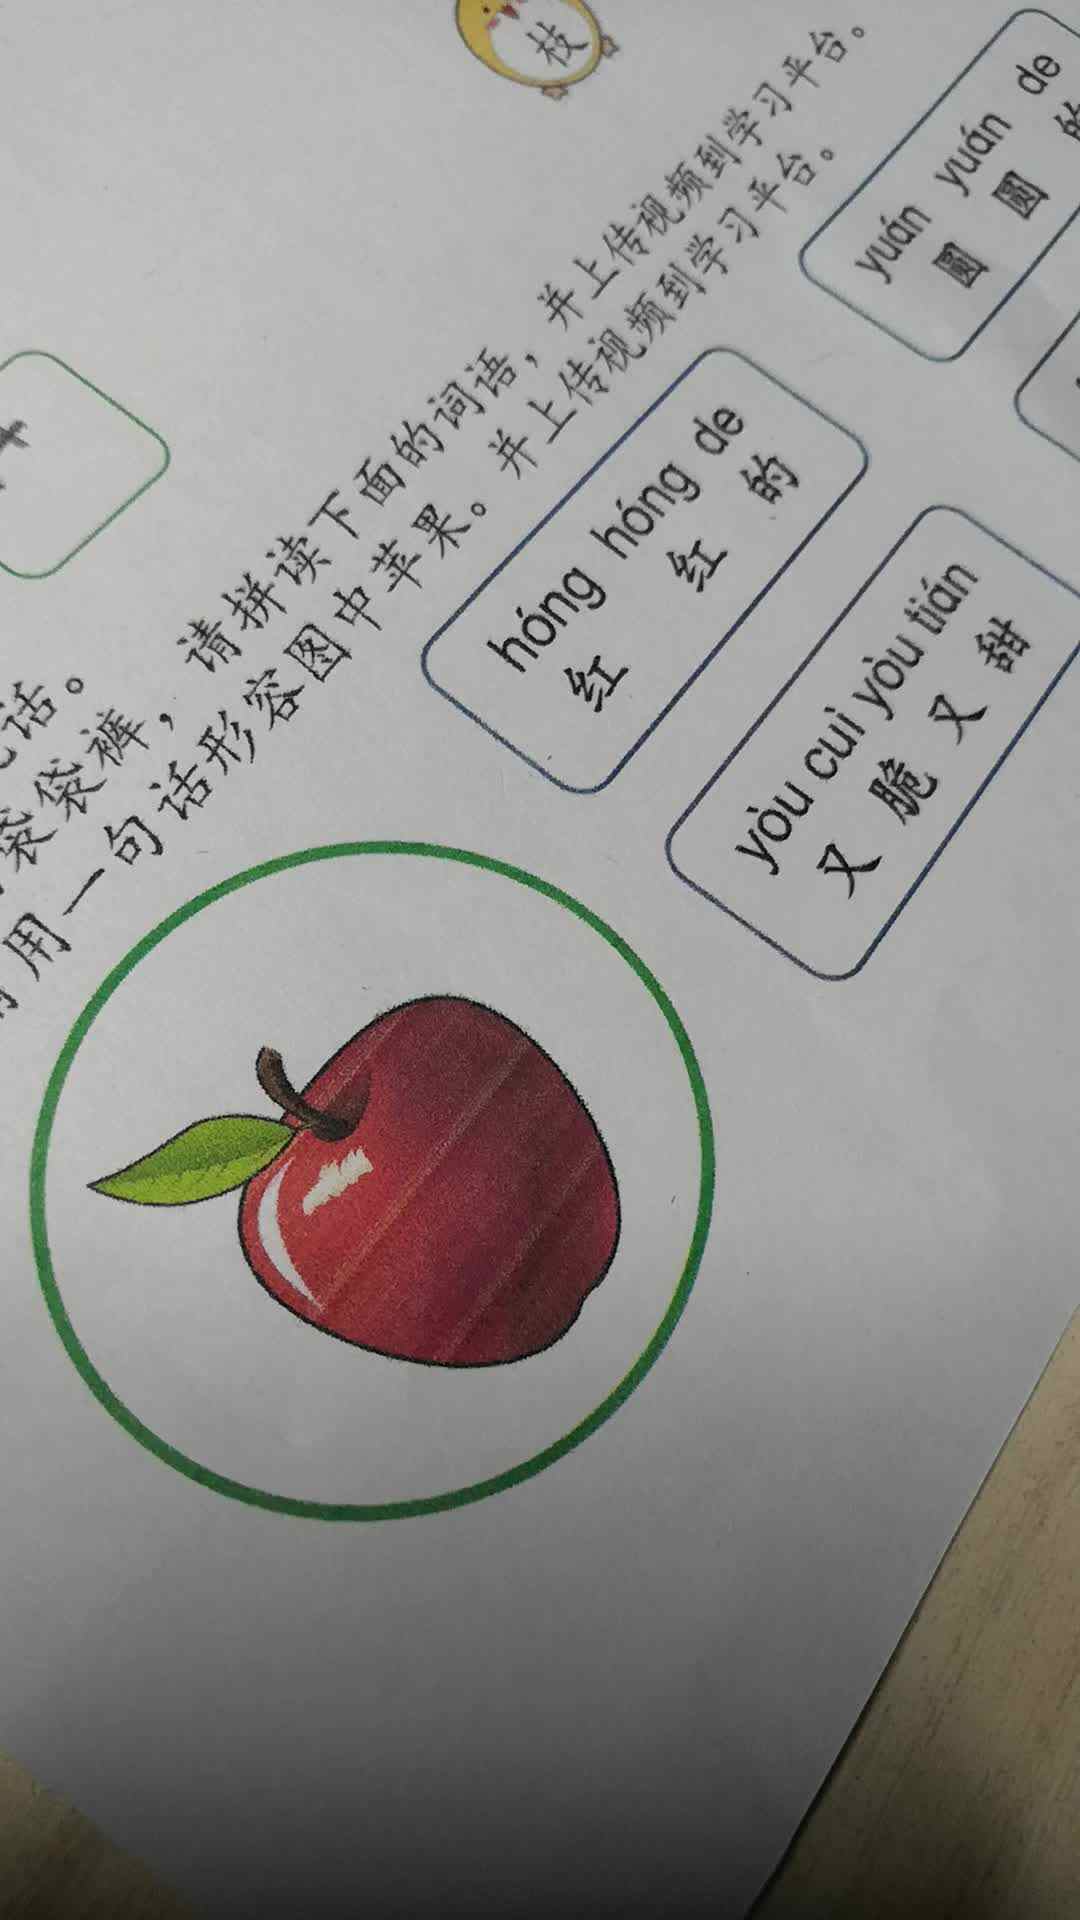 枝
话。
袋袋裤，请拼读下面的词语，并上传视频到学习平台。
用一句话形容图中苹果。并上传视频到学习平台。
hóng hóng de
红 红 的
yuán yuán de
圆 圆 的
yòu cuì yòu tián
又 脆 又 甜